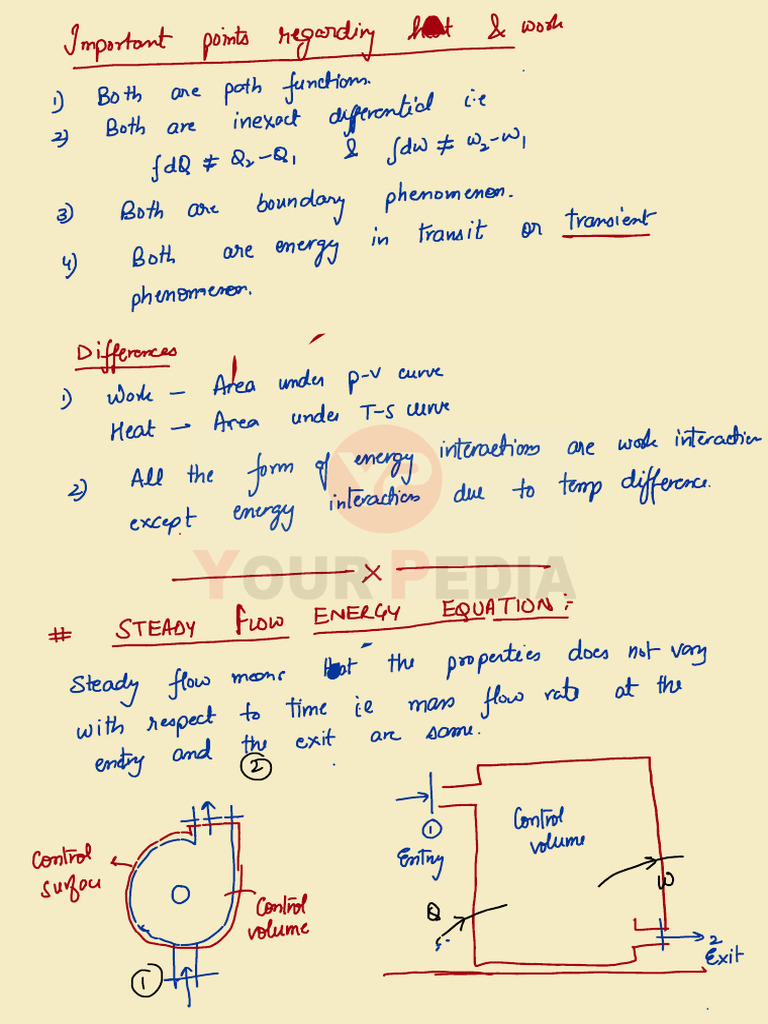 Important points regarding heat & work
1) Both are path functions.
2) Both are inexact differential i.e
∫dQ ≠ Q₂-Q₁ & ∫dw ≠ w₂-w₁
3) Both are boundary phenomenon.
4) Both are energy in transit or transient
phenomenon.
Differences
1) Work - Area under P-V curve
Heat → Area under T-S curve
2) All the form of energy interactions are work interaction
except energy interaction due to temp difference.
YP
YOUR PEDIA
x
# STEADY FLOW ENERGY EQUATION :-
Steady flow means that the properties does not vary
with respect to time i.e mass flow rate at the
entry and the exit are same.
2
Control
surface
Control
volume
1
1
Entry
Control
volume
Q
W
2
Exit